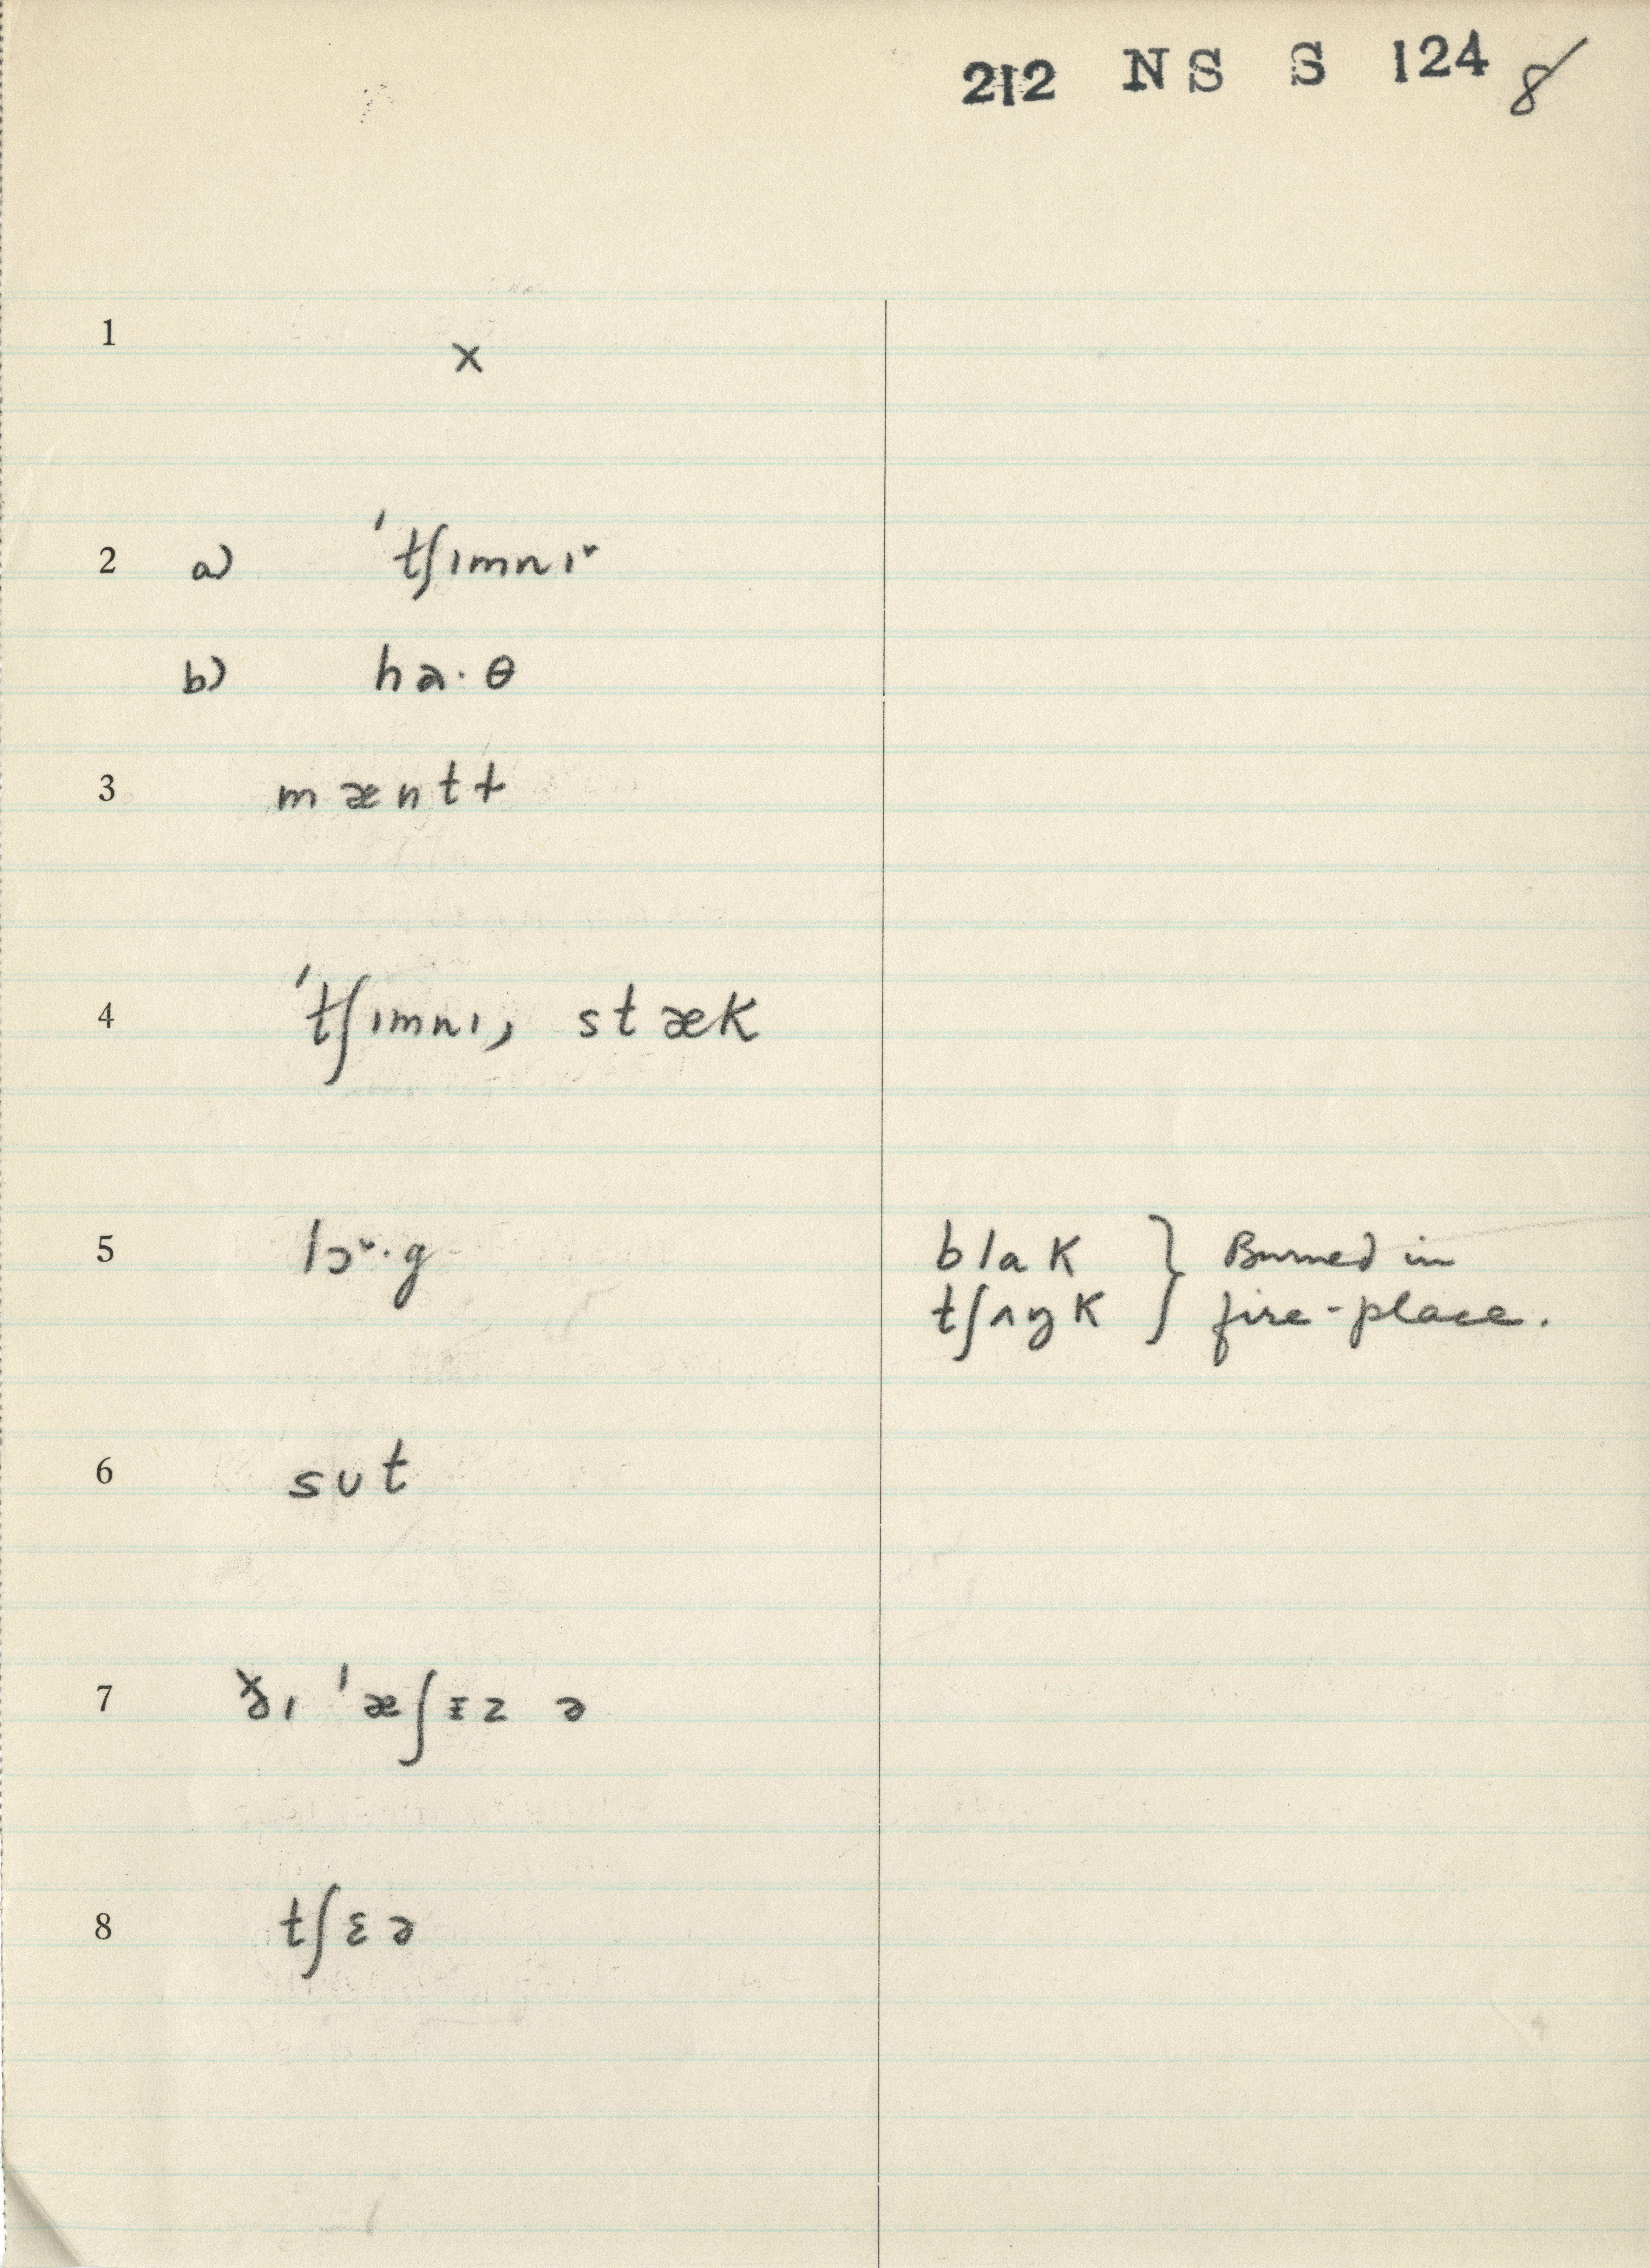 212 NS S 124 8
1 x
2 a) ˈtʃɪmnɪ˅
b) ha·θ
3 mæntɫ
4 ˈtʃɪmnɪ, stæk
5 lɔ˅·g blak } Burned in
tʃʌŋk } fire-place.
6 sʊt
7 ðɪ ˈæʃɪz ə
8 tʃɛə